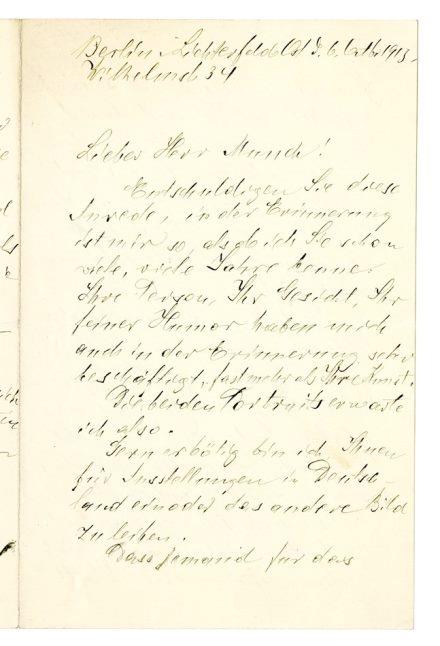 Berlin-Lichterfelde Ost d. 6. Octb. 1913,
Wilhelmstr 34
Lieber Herr Munch!
Entschuldigen Sie diese
Anrede, in der Erinnerung
ist mir so, als ob ich Sie schon
viele, viele Jahre kenne.
Ihre Person, Ihr Gesicht, Ihr
feiner Humor haben mich
auch in der Erinnerung sehr
beschäftigt, fast mehr als Ihre Kunst.
Die beiden Portraits erwarte
ich also.
Gern erbötig bin ich Ihnen
für Ausstellungen in Deutsch-
land ein oder das andere Bild
zu leihen.
Dass Jemand für das